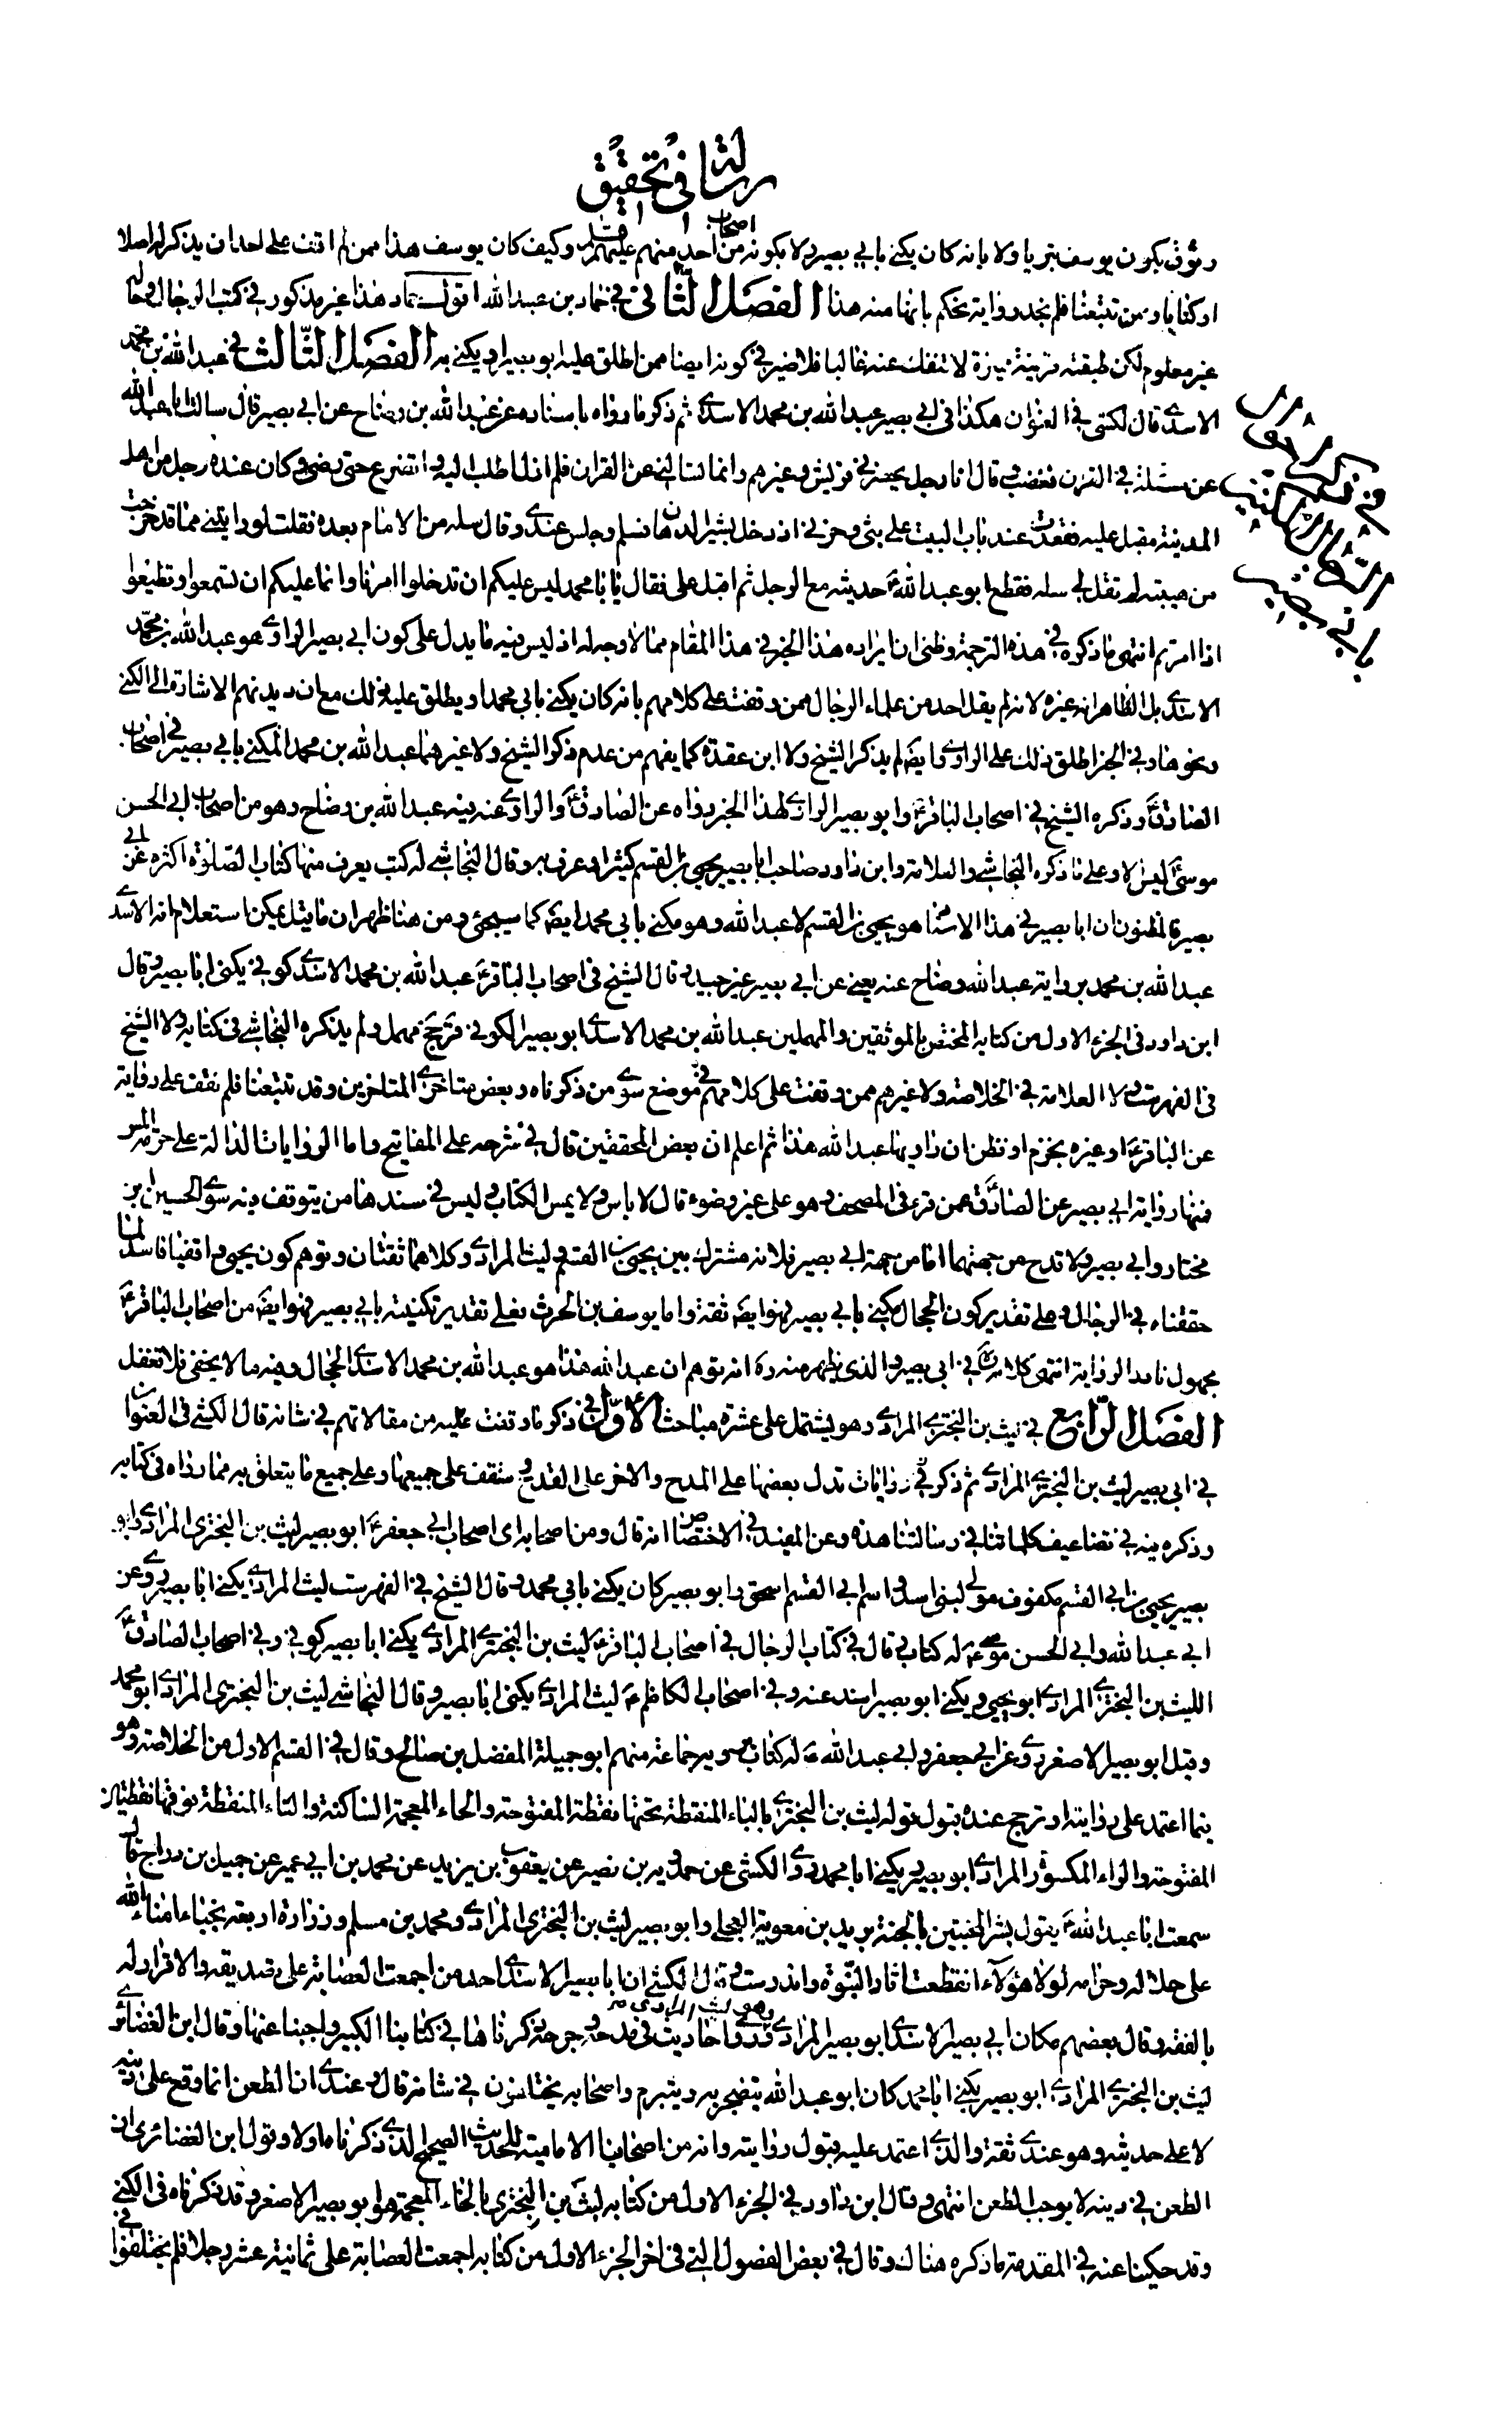 رسالة في تحقيق
وثوق بكون يوسف بتريا ولا بانه كان يكنى بابي بصير ولا بكونه من اصحاب احد منهم عليهم السلام وكيف كان يوسف هذا ممن لم اقف على احد ان يذكر له اصلا
او كتابا ومن تتبعنا فلم نجد رواية نحكم بانها منه هنا الفصل الثاني في حماد بن عبد الله اقول حماد هذا غير مذكور في كتب الرجال وحاله
غير معلوم لكن طبقته قرينة مميزة لا تنفك عنه غالبا فلا ضير في كونه ايضا ممن اطلق عليه ابو بصير او يكنى به الفصل الثالث في عبد الله بن محمد
الاسدي قال الكشي في العنوان هكذا في ابي بصير عبد الله بن محمد الاسدي ثم ذكر ما رواه باسناده عن عبد الله بن وضاح عن ابي بصير قال سالت ابا عبد الله
عن مسئلة في القرن فغضب وقال انا رجل يحضرني قريش وغيرهم وانما تسالني عن القران فلم ازل اطلب اليه واتضرع حتى رضي وكان عنده رجل من اهل
المدينة مقبل عليه فقعدت عند باب البيت على بثي وحزني اذ دخل بشير الدهان فسلم وجلس عندي وقال سله من الامام بعده فقلت لو رايتني مما قد خرجت
من هيبته لم تقل لي سله فقطع ابو عبد الله ع حديثه مع الرجل ثم اقبل على فقال يا با محمد ليس عليكم ان تدخلوا امرنا وانما عليكم ان تسمعوا وتطيعوا
اذا امرتم انتهى ما ذكره في هذه الترجمة وظني ان ايراده هذا الخبر في هذا المقام مما لا وجه له اذ ليس فيه ما يدل على كون ابي بصير الراوي هو عبد الله بن محمد
الاسدي بل الظاهر انه غيره لانه لم يقل احد من علماء الرجال ممن وقفت على كلامهم بانه كان يكنى بابي محمد او يطلق عليه ذلك مع ان ديدنهم الاشارة الى الكنى
ونحوها وفي الخبر اطلق ذلك على الراوي وايضا لم يذكر الشيخ ولا ابن عقدة كما يفهم من عدم ذكر الشيخ ولا غيرهما عبد الله بن محمد المكنى بابي بصير في اصحاب
الصادق ع وذكره الشيخ في اصحاب الباقر ع وابو بصير الراوي لهذا الخبر رواه عن الصادق ع والراوي عنه فيه عبد الله بن وضاح وهو من اصحاب ابي الحسن
موسى ع ليس الا وعلى ما ذكره النجاشي والعلامة وابن داود صاحب ابا بصير يحيى بن القسم كثيرا وعرف به وقال النجاشي له كتب يعرف منها كتاب الصلوة اكثره عن ابي
بصير فالمظنون ان ابا بصير في هذا الاسناد هو يحيى بن القسم لا عبد الله وهو مكنى بابي محمد ايضا كما سيجئ ومن هنا ظهر ان ما قيل يمكن استعلام انه الاسدي
عبد الله بن محمد برواية عبد الله وضاح عنه يعني عن ابي بصير غير جيد وقال الشيخ في اصحاب الباقر ع عبد الله بن محمد الاسدي كوفي يكنى ابا بصير وقال
ابن داود في الجزء الاول من كتابه المختص بالموثقين والمهملين عبد الله بن محمد الاسدي ابو بصير الكوفي قر جخ مهمل ولم يذكره النجاشي في كتابه ولا الشيخ
في الفهرست ولا العلامة في الخلاصة ولا غيرهم ممن وقفت على كلامهم في موضع سوى من ذكرناه وبعض متاخري المتاخرين وقد تتبعنا فلم نقف على رواية
عن الباقر ع او غيره بجزم او نظن ان راويها عبد الله هذا ثم اعلم ان بعض المحققين قال في شرحه على المفاتيح واما الروايات الدالة على حرمة المس
فمنها رواية ابي بصير عن الصادق ع عمن قرء في المصحف وهو على غير وضوء قال لا باس ولا يمس الكتاب وليس في سندها من يتوقف فيه سوى الحسين بن
مختار وابي بصير ولا قدح من جهتهما اما من جهة ابي بصير فلانه مشترك بين يحيى بن القسم وليث المرادي وكلاهما ثقتان وتوهم كون يحيى واقفيا فاسد لما
حققناه في الرجال وعلى تقدير كون الحجال مكنى بابي بصير فهو ايضا ثقة واما يوسف بن الحرث فعلى تقدير تكنيته بابي بصير فهو ايضا من اصحاب الباقر ع
مجهول نامد الرواية انتهى كلامه في ابي بصير والذي يظهر منه ره انه توهم ان عبد الله هذا هو عبد الله بن محمد الاسدي الحجال وفيه ما لا يخفى فلا تغفل
الفصل الرابع في ليث بن البختري المرادي وهو يشتمل على عشرة مباحث الاول في ذكر ما وقفت عليه من مقالاتهم في شانه قال الكشي في العنوان
في ابي بصير ليث بن البختري المرادي ثم ذكر فيه روايات تدل بعضها على المدح والاخر على القدح وستقف على جميعها وعلى جميع ما يتعلق به مما رواه في كتابه
وذكره فيه في تضاعيف كلماتنا في رسالتنا هذه وعن المفيد في الاختصاص انه قال ومن اصحابه اي اصحاب ابي جعفر ع ابو بصير ليث بن البختري المرادي وابو
بصير يحيى بن ابي القسم مكفوف مولى لبني اسد واسم ابي القسم اسحق وابو بصير كان يكنى بابي محمد وقال الشيخ في الفهرست ليث المرادي يكنى ابا بصير روى عن
ابي عبد الله وابي الحسن موسى ع له كتاب وقال في كتاب الرجال في اصحاب الباقر ع ليث بن البختري المرادي يكنى ابا بصير كوفي وفي اصحاب الصادق ع
الليث بن البختري المرادي ابو يحيى ويكنى ابو بصير اسند عنه وفي اصحاب الكاظم ع ليث المرادي يكنى ابا بصير وقال النجاشي ليث بن البختري المرادي ابو محمد
وقيل ابو بصير الاصغر روى عن ابي جعفر وابي عبد الله ع له كتاب يرويه جماعة منهم ابو جميلة المفضل بن صالح وقال في القسم الاول من الخلاصة وهو
فيما اعتمد على روايته او ترجح عنده بقول قوله ليث بن البختري بالباء المنقطة تحتها نقطة المفتوحة والخاء المعجمة الساكنة والتاء المنقطة فوقها نقطتان
المفتوحة والراء المكسورة المرادي ابو بصير ويكنى ابا محمد روى الكشي عن حمدويه بن نصير عن يعقوب بن يزيد عن محمد بن ابي عمير عن جميل بن دراج قال
سمعت ابا عبد الله ع يقول بشر المخبتين بالجنة بريد بن معوية العجلي وابو بصير ليث بن البختري المرادي ومحمد بن مسلم وزرارة اربعة نجباء امناء الله
على حلاله وحرامه لولا هؤلاء انقطعت اثار النبوة واندرست وقال الكشي ان ابا بصير الاسدي احد من اجمعت العصابة على تصديقه والاقرار له
بالفقه وقال بعضهم مكان ابي بصير الاسدي ابو بصير المرادي وهو ليث المرادي روى احاديث في مدحه وجرحه ذكرناها في كتابنا الكبير واجبنا عنها وقال ابن الغضائري
ليث بن البختري المرادي ابو بصير يكنى ابا محمد كان ابو عبد الله يتضجر به ويتبرم واصحابه يختلفون في شانه قال وعندي ان الطعن انما وقع على دينه
لا على حديثه وهو عندي ثقة والذي اعتمد عليه قبول روايته وانه من اصحابنا الامامية للحديث الصحيح الذي ذكرناه اولا وقول ابن الغضائري ان
الطعن في دينه لا يوجب الطعن انتهى وقال ابن داود في الجزء الاول من كتابه ليث بن البختري بالخاء المعجمة هو ابو بصير الاصغر وقد ذكرناه في الكنى
وقد حكينا عنه في المقدمة ما ذكره هناك وقال في بعض الفصول التي في اخر الجزء الاول من كتابه اجمعت العصابة على ثمانية عشر رجلا فلم يختلفوا في
بابي بصير